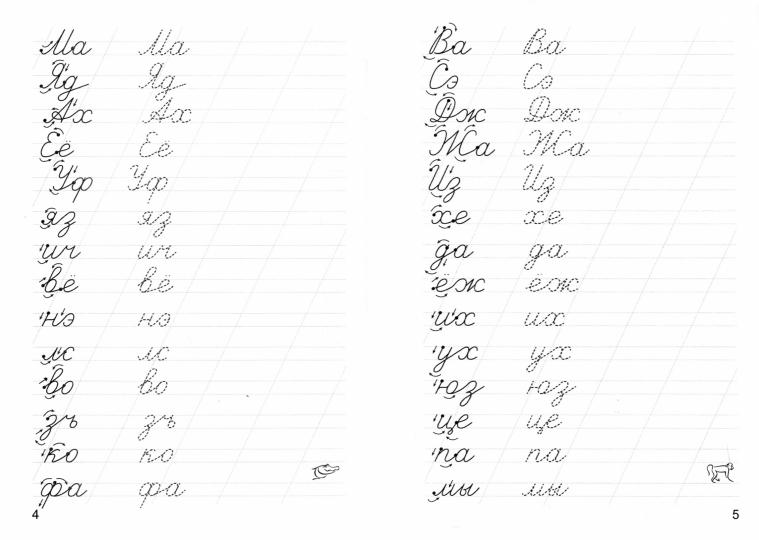 Ма Ма
Яд Яд
Ах Ах
Её Её
Уф Уф
яз яз
ич ич
вё вё
нэ нэ
лс лс
во во
зъ зъ
ко ко
фа фа
4
Ва Ва
Сэ Сэ
Дж Дж
Жа Жа
Из Из
хе хе
да да
ёж ёж
их их
ух ух
юз юз
це це
па па
мы мы
5